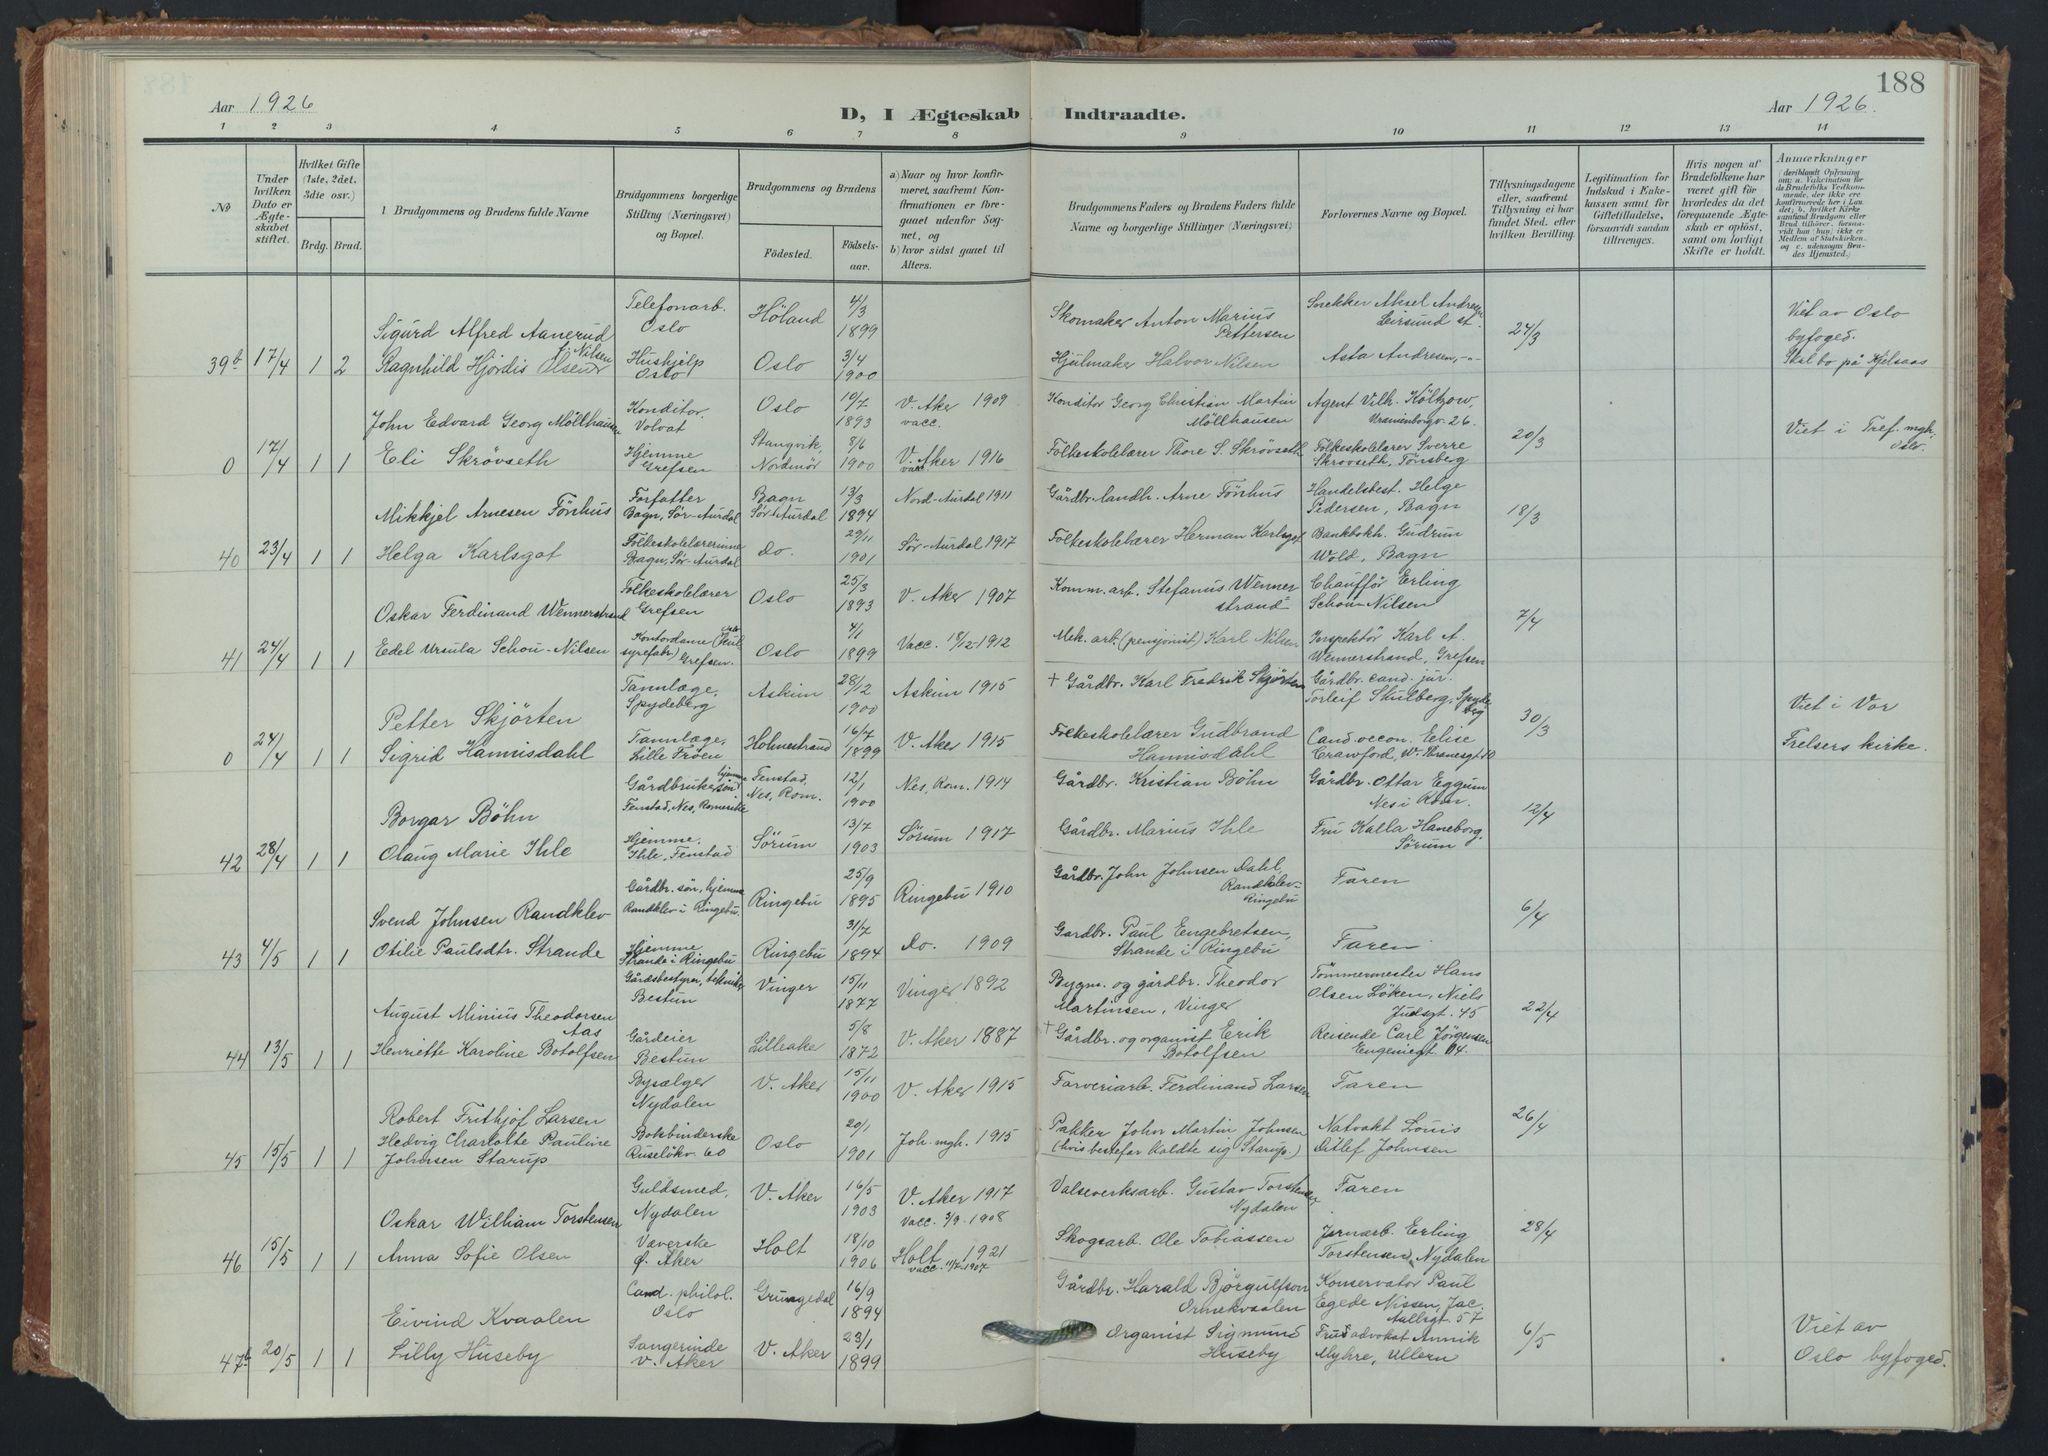 188
Aar 1926
D, I Ægteskab Indtraadte.
Aar 1926.
1 2 3 4 5 6 7 8 9 10 11 12 13 14
No
Under hvilken Dato er Ægteskabet stiftet.
Hvilket Gifte (1ste, 2det, 3die osv.)
Brdg. Brud.
Brudgommens og Brudens fulde Navne
Brudgommens borgerlige Stilling (Næringsvei) og Bopæl.
Brudgommens og Brudens
Födested.
Födselsaar.
a) Naar og hvor konfirmeret, saafremt Konfirmationen er foregaaet udenför Sognet, og
b) hvor sidst gaaet til Alters.
Brudgommens Faders og Brudens Faders fulde Navne og borgerlige Stillinger (Næringsvei)
Forlovernes Navne og Bopæl.
Tillysningsdagene eller, saafremt Tillysning ei har fundet Sted, efter hvilken Bevilling.
Legitimation for Indskud i Enkekassen samt for Giftetilladelse, forsaavidt saadan tiltrænges.
Hvis nogen af Brudefolkene har været gift før hvorledes da det foregaaende Ægteskab er opløst, samt om lovligt Skifte er holdt.
Anmærkninger
39b 17/4 1 2
Sigurd Alfred Aanerud Telefonarb. Oslo Höland 4/3 1899 Skomaker Anton Marius Pettersen Snekker Aksel Andresen Leirsund st. 24/3 Viet av Oslo byfoged.
Ragnhild Hjördis Olsen f. Nilsen Hushjelp Oslo Oslo 3/4 1900 Hjulmaker Halvor Nilsen Asta Andresen, -"- Skal bo på Kjelsaas
0 17/4 1 1
John Edvard Georg Möllhausen Konditor. Volvat Oslo 10/7 1893 V. Aker 1909 vacc. Konditor Georg Christian Martin Möllhausen Agent Vilh. Költzow, Uranienborgv. 26. 20/3 Viet i Tref. mgh. Oslo.
Eli Skrövseth Hjemme Grefsen Stangvik, Nordmör 8/6 1900 V. Aker 1916 vacc. Folkeskolelærer Thore S. Skrövseth Folkeskolelærer Sverre Skrövseth, Tönsberg
40 23/4 1 1
Mikkjel Arnesen Fönhus Forfatter Bagn, Sör-Aurdal Bagn Sör-Aurdal 13/3 1894 Nord-Aurdal 1911 Gårdbr. landh. Arne Fönhus Handelsbest. Helge Pedersen, Bagn 18/3
Helga Karlsgot Folkeskolelærerinne Bagn, Sör-Aurdal do. 29/11 1901 Sör-Aurdal 1917 Folkeskolelærer Herman Karlsgot Bankbokh. Gudrun Wold, Bagn
41 24/4 1 1
Oskar Ferdinand Wennerstrand Folkeskolelærer Grefsen Oslo 25/3 1893 V. Aker 1907 Komm. arb. Stefanus Wennerstrand Chaufför Erling Schou-Nilsen 7/4
Edel Ursula Schou-Nilsen Kontordame (Oslo Kulsyrefabr.) Grefsen. Oslo 4/1 1899 Vacc. 18/12-1912 Mek. arb. (pensjonist) Karl Nilsen Inspektör Karl A. Wennerstrand, Grefsen
0 24/4 1 1
Petter Skjörten Tannlæge, Spydeberg Askim 28/12 1900 Askim 1915 † Gårdbr. Karl Fredrik Skjörten Gårdbr. cand. jur. Torleif Stulberg, Spydeberg 30/3 Viet i Vor Frelsers kirke.
Sigrid Hannisdahl Tannlæge, Lille Fröen Holmestrand 16/7 1899 V. Aker 1915 Folkeskolelærer Gudbrand Hannisdahl Cand. oecon. Elise Crawford, W. Thranesgt. 10
42 28/4 1 1
Borgar Böhn Gårdbrukersön hjemme Fenstad, Nes, Romerike Fenstad, Nes, Rom. 12/1 1900 Nes, Rom. 1914 Gårdbr. Kristian Böhn Gårdbr. Ottar Eggum Nes i Rom. 12/4
Olaug Marie Ihle Hjemme, Ihle, Fenstad Sörum 13/7 1903 Sörum 1917 Gårdbr. Marius Ihle Fru Kalla Haneborg, Sörum
43 4/5 1 1
Svend Johnsen Randklev Gårdbr. sön, hjemme Randklev i Ringebu. Ringebu 25/9 1895 Ringebu 1910 Gårdbr. John Johnsen Dahl, Randklev-Ringebu Faren 6/4
Otilie Paulsdtr. Strande Hjemme Strande i Ringebu Ringebu 31/7 1894 do. 1909 Gardbr. Paul Engebretsen, Strande i Ringebu Faren
44 13/5 1 1
August Minius Theodorsen Aas Gårdsbestyrer, tekniker Bestun Vinger 15/11 1877 Vinger 1892 Bygm. og gårdbr. Theodor Martinsen, Vinger Tömmermester Hans Olsen Löken, Niels Juelsgt. 45 22/4
Henriette Karoline Botolfsen Gårdeier Bestun Lilleake 5/8 1872 V. Aker 1887 † Gårdbr. og organist Erik Botolfsen Reisende Carl Jörgensen Eugeniegt
45 15/5 1 1
Robert Frithjof Larsen Bysælger Nydalen V. Aker 15/11 1900 V. Aker 1915 Farveriarb. Ferdinand Larsen Faren 26/4
Hedvig Charlotte Pauline Johnsen Starup Bokbinderske Ruselökv. 60 Oslo 20/1 1901 Joh. mgh. 1915 Pakker John Martin Johnsen (hvis bestefar kaldte sig Starup.) Natvakt Louis Ditlef Johnsen
46 15/5 1 1
Oskar William Torstensen Guldsmed, Nydalen V. Aker 16/5 1903 V. Aker 1917 Vacc. 3/9 1908 Valseverksarb. Gustav Torstensen, Nydalen Faren 28/4
Anna Sofie Olsen Væverske Ö. Aker Holt 18/10 1906 Holt 1921 vacc. 11/7 1907 Skogsarb. Ole Tobiassen Jernarb. Erling Torstensen, Nydalen
47b 20/5 1 1
Eivind Kvaalen Cand. philol. Oslo Grungedal 16/9 1894 Gårdbr. Harald Björgulfson Ormekvaalen Konservator Paul Egede Nissen, Jac. Aallsgt. 57 6/5 Viet av Oslo byfoged.
Lilly Huseby Sangerinde V. Aker V. Aker 23/1 1899 Organist Sigmund Huseby Fru advokat Annik Myhre, Ullern